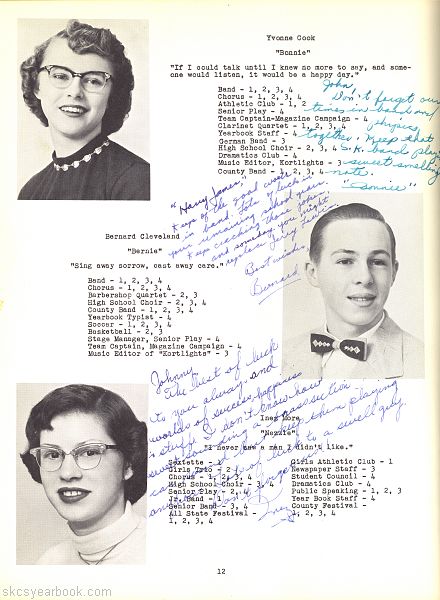 Yvonne Cook
"Bonnie"
"If I could talk until I knew no more to say, and some-
one would listen, it would be a happy day."
Band - 1, 2, 3, 4
Chorus - 1, 2, 3, 4
Athletic Club - 1, 2
Senior Play - 4
Team Captain-Magazine Campaign - 4
Clarinet Quartet - 1, 2, 3, 4
Yearbook Staff - 4
German Band - 3
High School Choir - 2, 3, 4
Dramatics Club - 4
Music Editor, Kortlights - 3
County Band - 1, 2, 3, 4
John,
Don't forget our
times in band and
physics
together. Keep that
S.K. band play
sweet smelling
note.
"Bonnie"
"Harry James,"
of the good work
in band. Lots of luck in
your remaining school years.
cracking those jokes,
and someday you might
replace Jerry Lewis.
Best wishes,
Bernard
Bernard Cleveland
"Bernie"
"Sing away sorrow, cast away care."
Band - 1, 2, 3, 4
Chorus - 1, 2, 3, 4
Barbershop Quartet - 2, 3
High School Choir - 2, 3, 4
County Band - 1, 2, 3, 4
Yearbook Typist - 4
Soccer - 1, 2, 3, 4
Basketball - 2, 3
Stage Manager, Senior Play - 4
Team Captain, Magazine Campaign - 4
Music Editor of "Kortlights" - 3
Johnny,
The best of luck
to you always and
worlds of success, happiness
stuff. I don't know how
section
keep them playing
luck to a swell guy
Inez More
"Nezzie"
"I never saw a man I didn't like."
Sextette -
Girls Trio - 2
Chorus - 1, 2, 3, 4
High School Choir - 3, 4
Senior Play - 2, 4
Jr. Band - 1
Senior Band - 3, 4
All State Festival -
1, 2, 3, 4
Girls Athletic Club - 1
Newspaper Staff - 3
Student Council - 4
Dramatics Club - 4
Public Speaking - 1, 2, 3
Year Book Staff - 4
County Festival -
1, 2, 3, 4
Inez
12
skcsyearbook.com